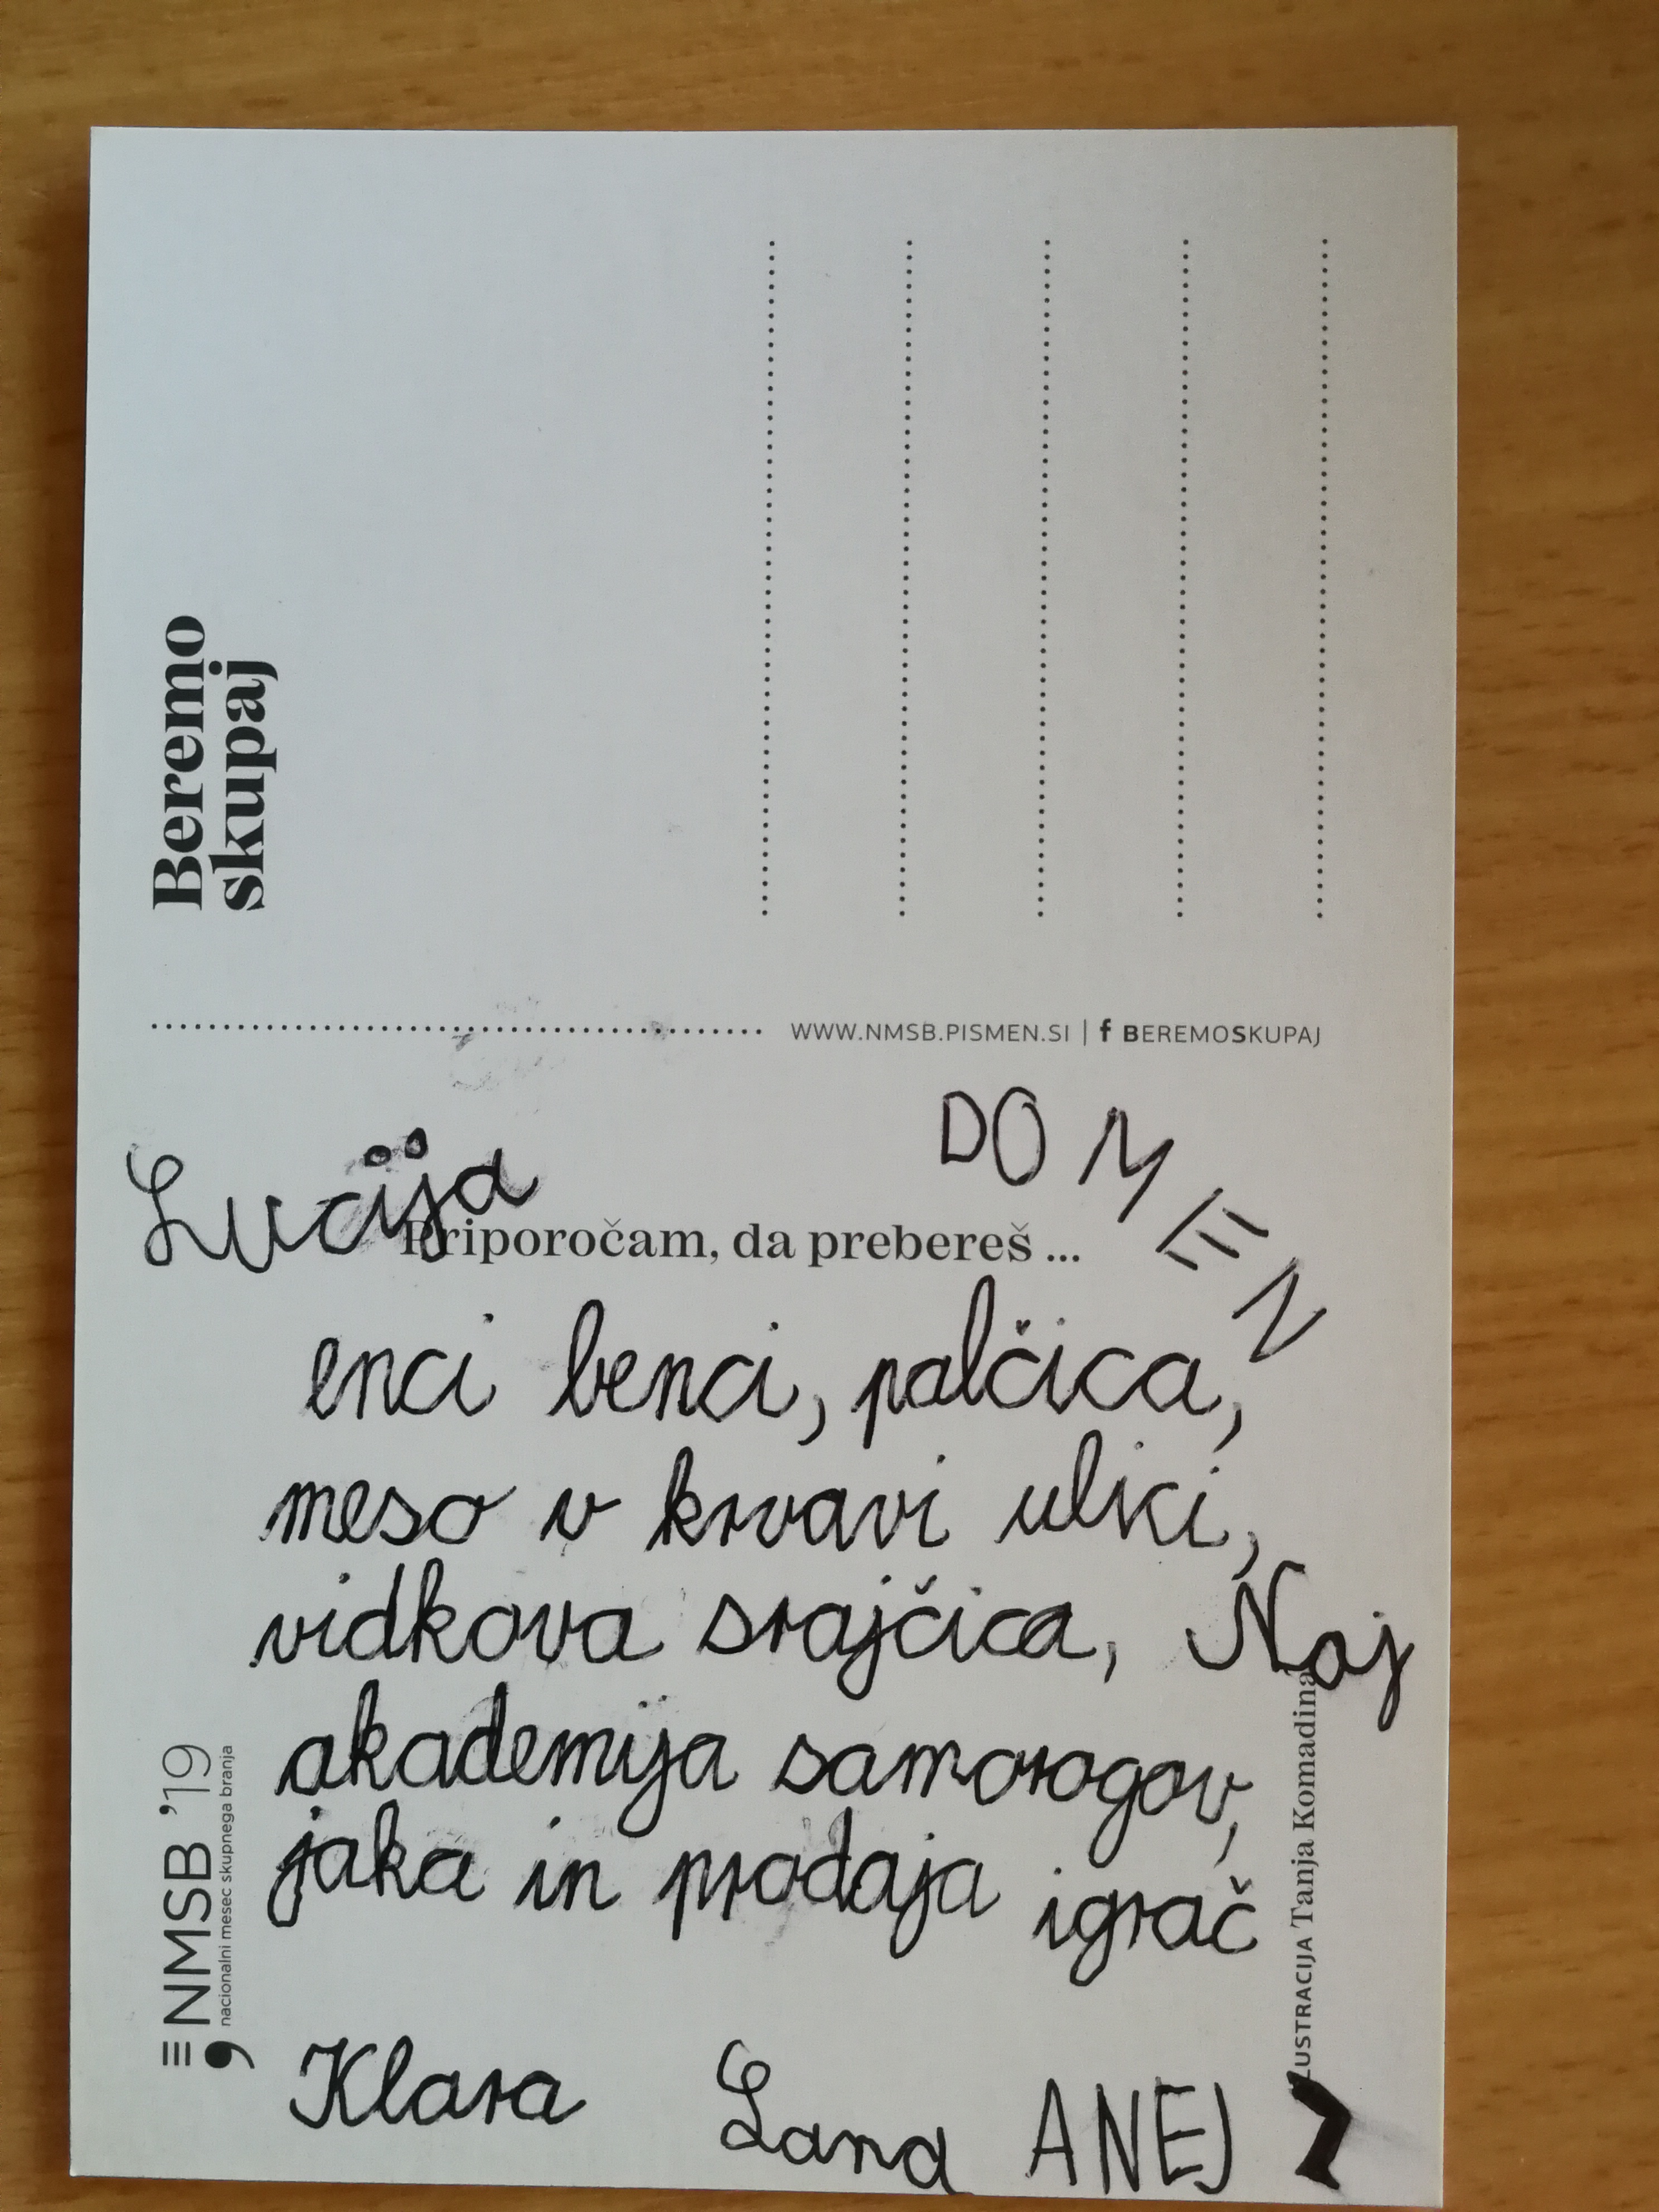 Beremo
skupaj
WWW.NMSB.PISMEN.SI | f BEREMOSKUPAJ
Lucija
DOMEN
Priporočam, da prebereš ...
enci benci, palčica,
meso v krvavi ulici,
vidkova srajčica, Noj
akademija samorogov,
jaka in prodaja igrač
NMSB '19
nacionalni mesec skupnega branja
ILUSTRACIJA Tanja Komadina
Klara Lana ANEJ